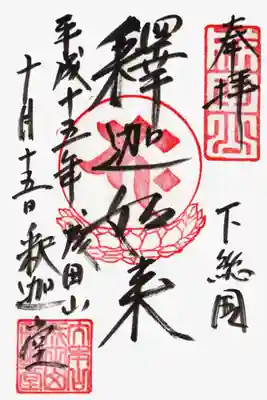 奉拝
下総国
釋迦如来
平成十五年
十月十五日
成田山
釈迦堂